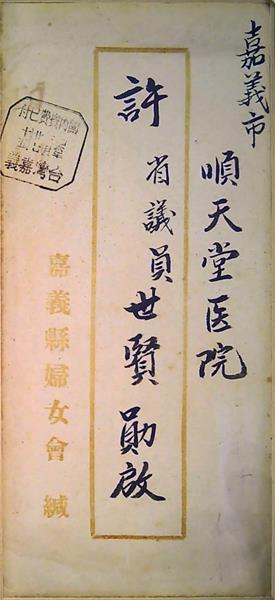 嘉義市
順天堂医院
許省議員世賢勛啟
嘉義縣婦女會 緘
國內郵資已付
台灣嘉義